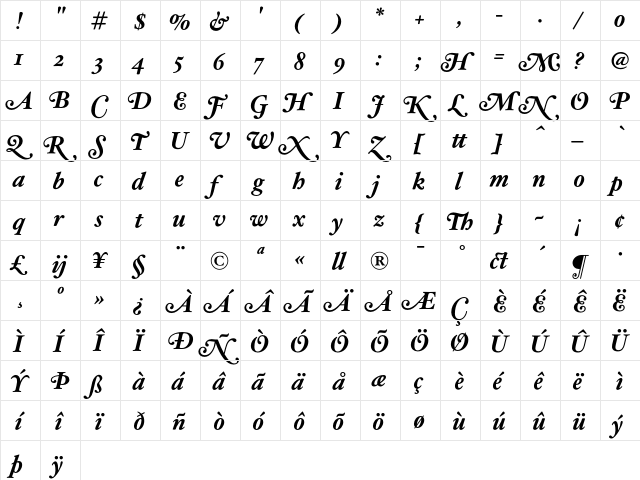 ! " # $ % & ' ( ) * + , - . / 0
1 2 3 4 5 6 7 8 9 : ; H = M ? @
A B C D E F G H I J K L M N O P
Q R S T U V W X Y Z [ tt ] ^ – `
a b c d e f g h i j k l m n o p
q r s t u v w x y z { Th } ~ ¡ ¢
£ ij ¥ § ¨ © ª « ll ® ¯ ° ct ´ ¶ ·
¸ º » ¿ À Á Â Ã Ä Å Æ Ç È É Ê Ë
Ì Í Î Ï Ð Ñ Ò Ó Ô Õ Ö Ø Ù Ú Û Ü
Ý Þ ß à á â ã ä å æ ç è é ê ë ì
í î ï ð ñ ò ó ô õ ö ø ù ú û ü ý
þ ÿ